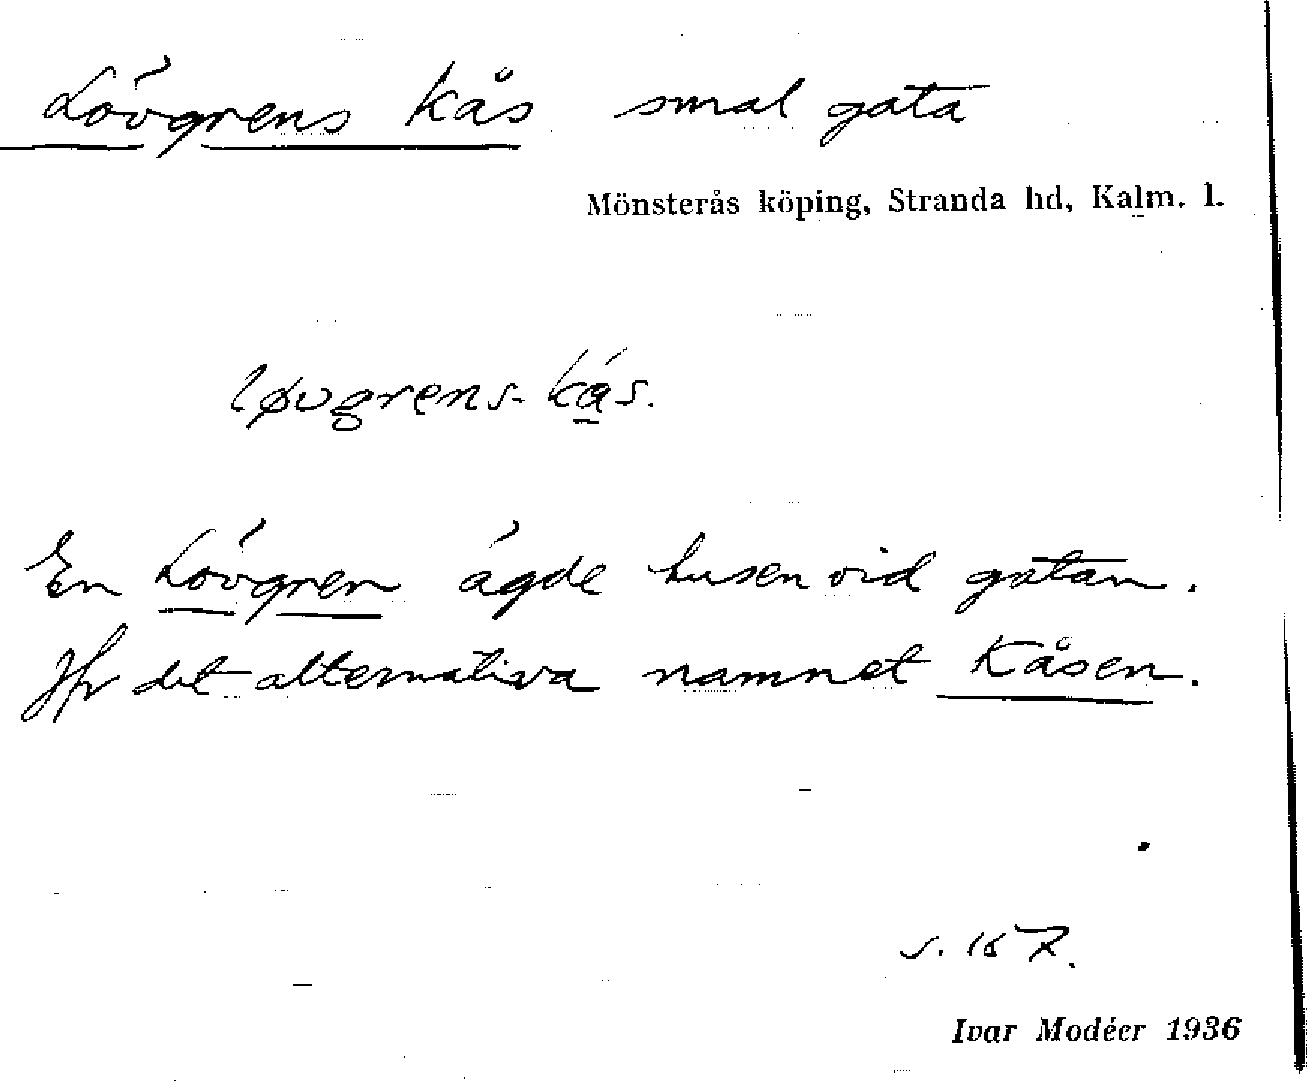 Lövgrens kås smal gata
Mönsterås köping, Stranda hd, Kalm. l.
løvgrens-kás.
En Lövgren ägde husen vid gatan.
Jfr det alternativa namnet Kåsen.
s. 167.
Ivar Modéer 1936